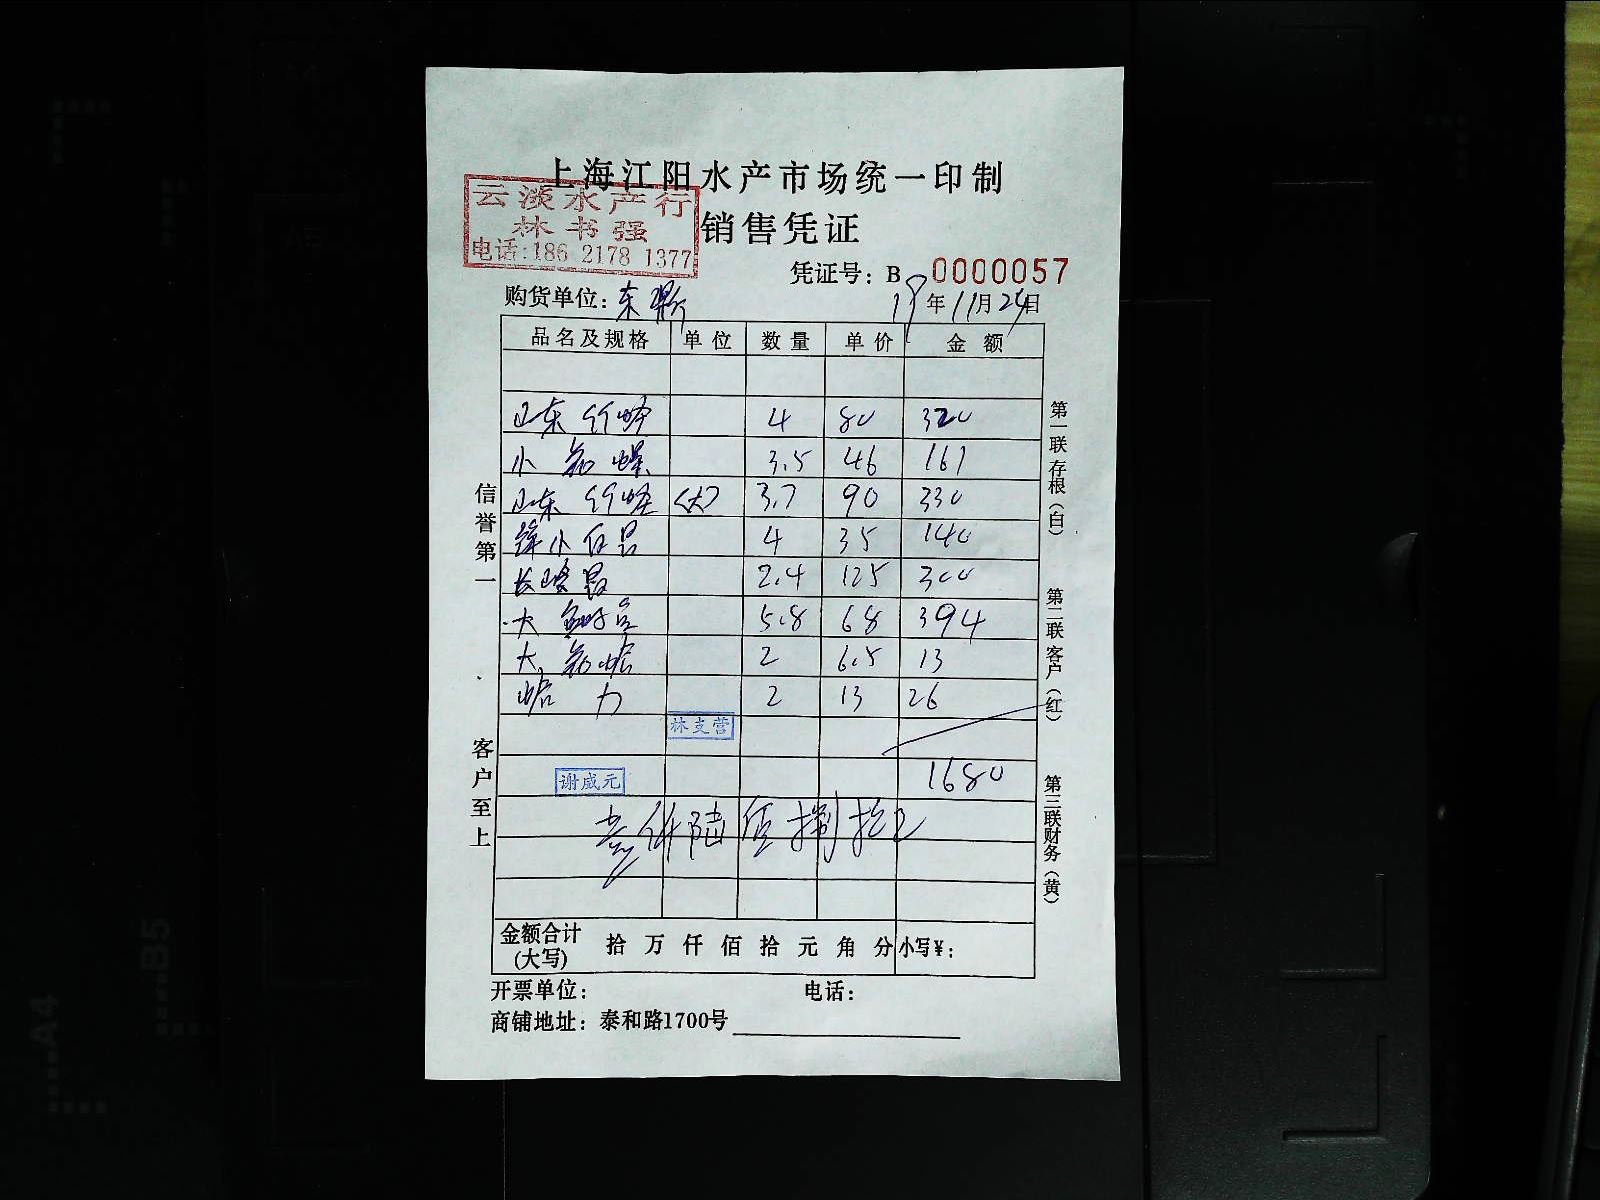 上海江阳水产市场统一印制
云淡水产行
林书强
电话:186 2178 1377
销售凭证
凭证号：B 0000057
购货单位：东
19年11月24日
品名及规格 单位 数量 单价 金额
山东竹蛏 4 80 320
小 螺 3.5 46 161
山东竹蛏 (大) 3.7 90 330
小白 4 35 140
长 2.4 125 300
大 5.8 68 394
大 蛤 2 6.5 13
蛤 力 2 13 26
林支营
1680
谢威元
壹仟陆佰捌拾
金额合计(大写) 拾 万 仟 佰 拾 元 角 分 小写¥：
开票单位： 电话：
商铺地址：泰和路1700号
信誉第一
客户至上
第一联存根(白)
第二联客户(红)
第三联财务(黄)
A4
B5